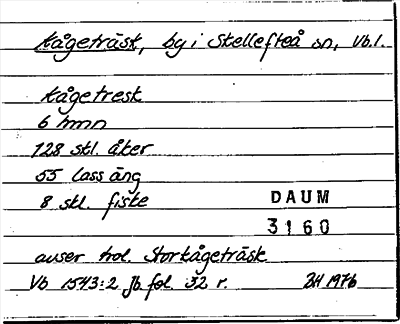 Kågeträsk, by i Skellefteå sn, Vb.l.
Kågetresk
6 hmn
128 skl. åker
55 lass äng
8 skl. fiske
DAUM
3160
avser trol. Storkågeträsk
Vb 1543:2 Jb fol. 32 r. BH 1976